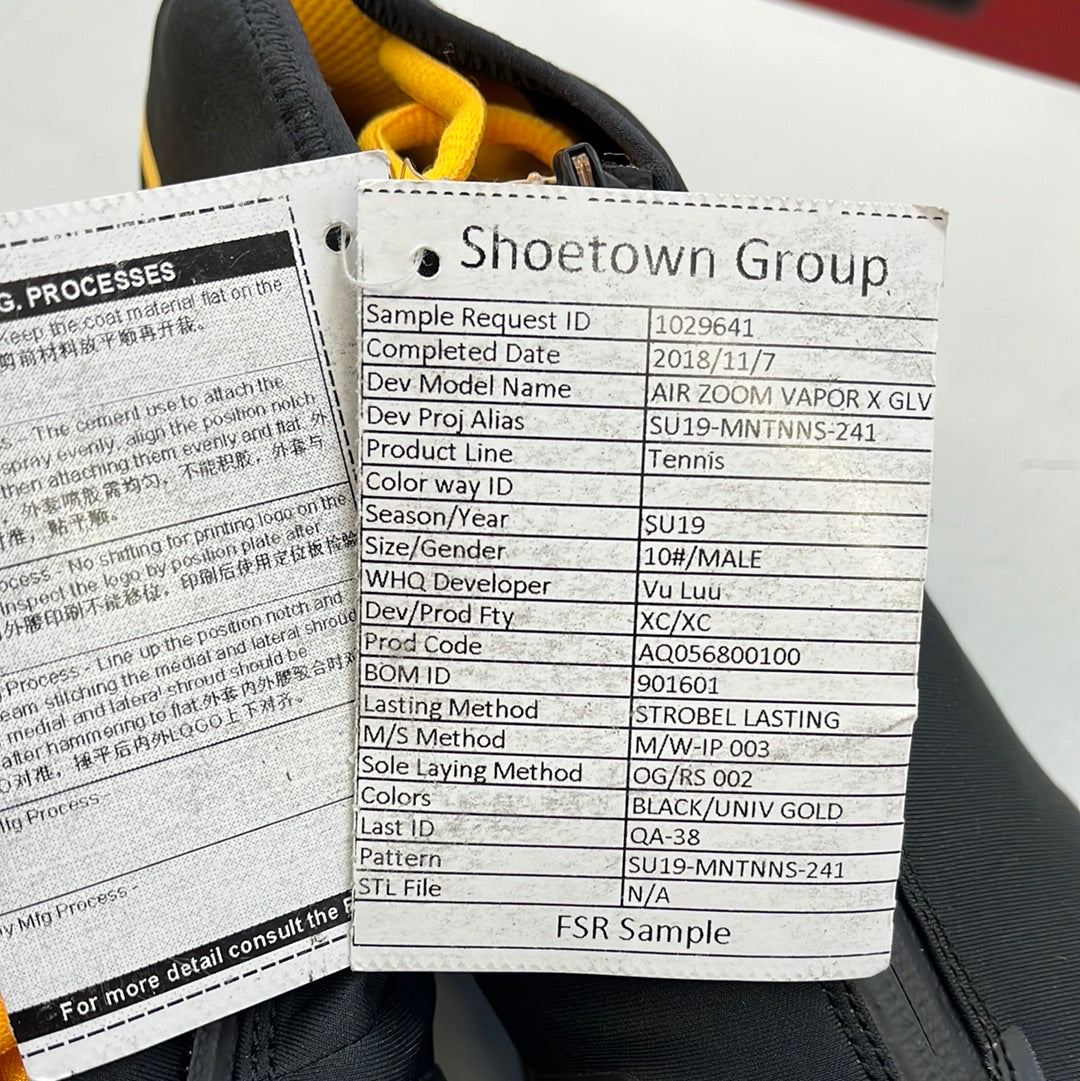 G. PROCESSES
Keep the coat material flat on the
剪前材料放平顺再开裁。
The cement use to attach the
spray evenly, align the position notch
then attaching them evenly and flat. 外
外套喷胶需均匀，不能积胶，外套与
准，贴平顺。
ocess - No shifting for printing logo on the
inspect the logo by position plate after
外腰印刷不能移位，印刷后使用定位板检验
Process - Line up the position notch and
eam stitching the medial and lateral shroud
medial and lateral shroud should be
after hammering to flat.外套内外腰驳合时对
对准，捶平后内外LOGO上下对齐。
Mfg Process -
y Mfg Process -
For more detail consult the
Shoetown Group
Sample Request ID 1029641
Completed Date 2018/11/7
Dev Model Name AIR ZOOM VAPOR X GLV
Dev Proj Alias SU19-MNTNNS-241
Product Line Tennis
Color way ID
Season/Year SU19
Size/Gender 10#/MALE
WHQ Developer Vu Luu
Dev/Prod Fty XC/XC
Prod Code AQ056800100
BOM ID 901601
Lasting Method STROBEL LASTING
M/S Method M/W-IP 003
Sole Laying Method OG/RS 002
Colors BLACK/UNIV GOLD
Last ID QA-38
Pattern SU19-MNTNNS-241
STL File N/A
FSR Sample